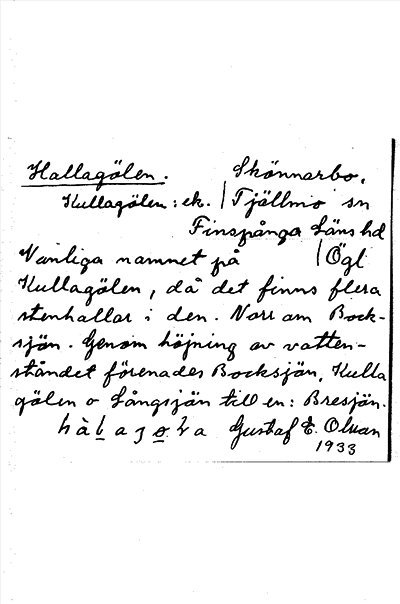 Hallagölen. Skönnarbo,
Kullagölen: ek. | Tjällmo sn
Finspånga Läns hd
Vanliga namnet på | Ögl
Kullagölen, då det finns flera
stenhallar i den. Norr om Bock-
sjön. Genom höjning av vatten-
ståndet förenades Bocksjön, Kulla
gölen o Långsjön till en: Bresjön.
Gustaf E. Olsson
1933